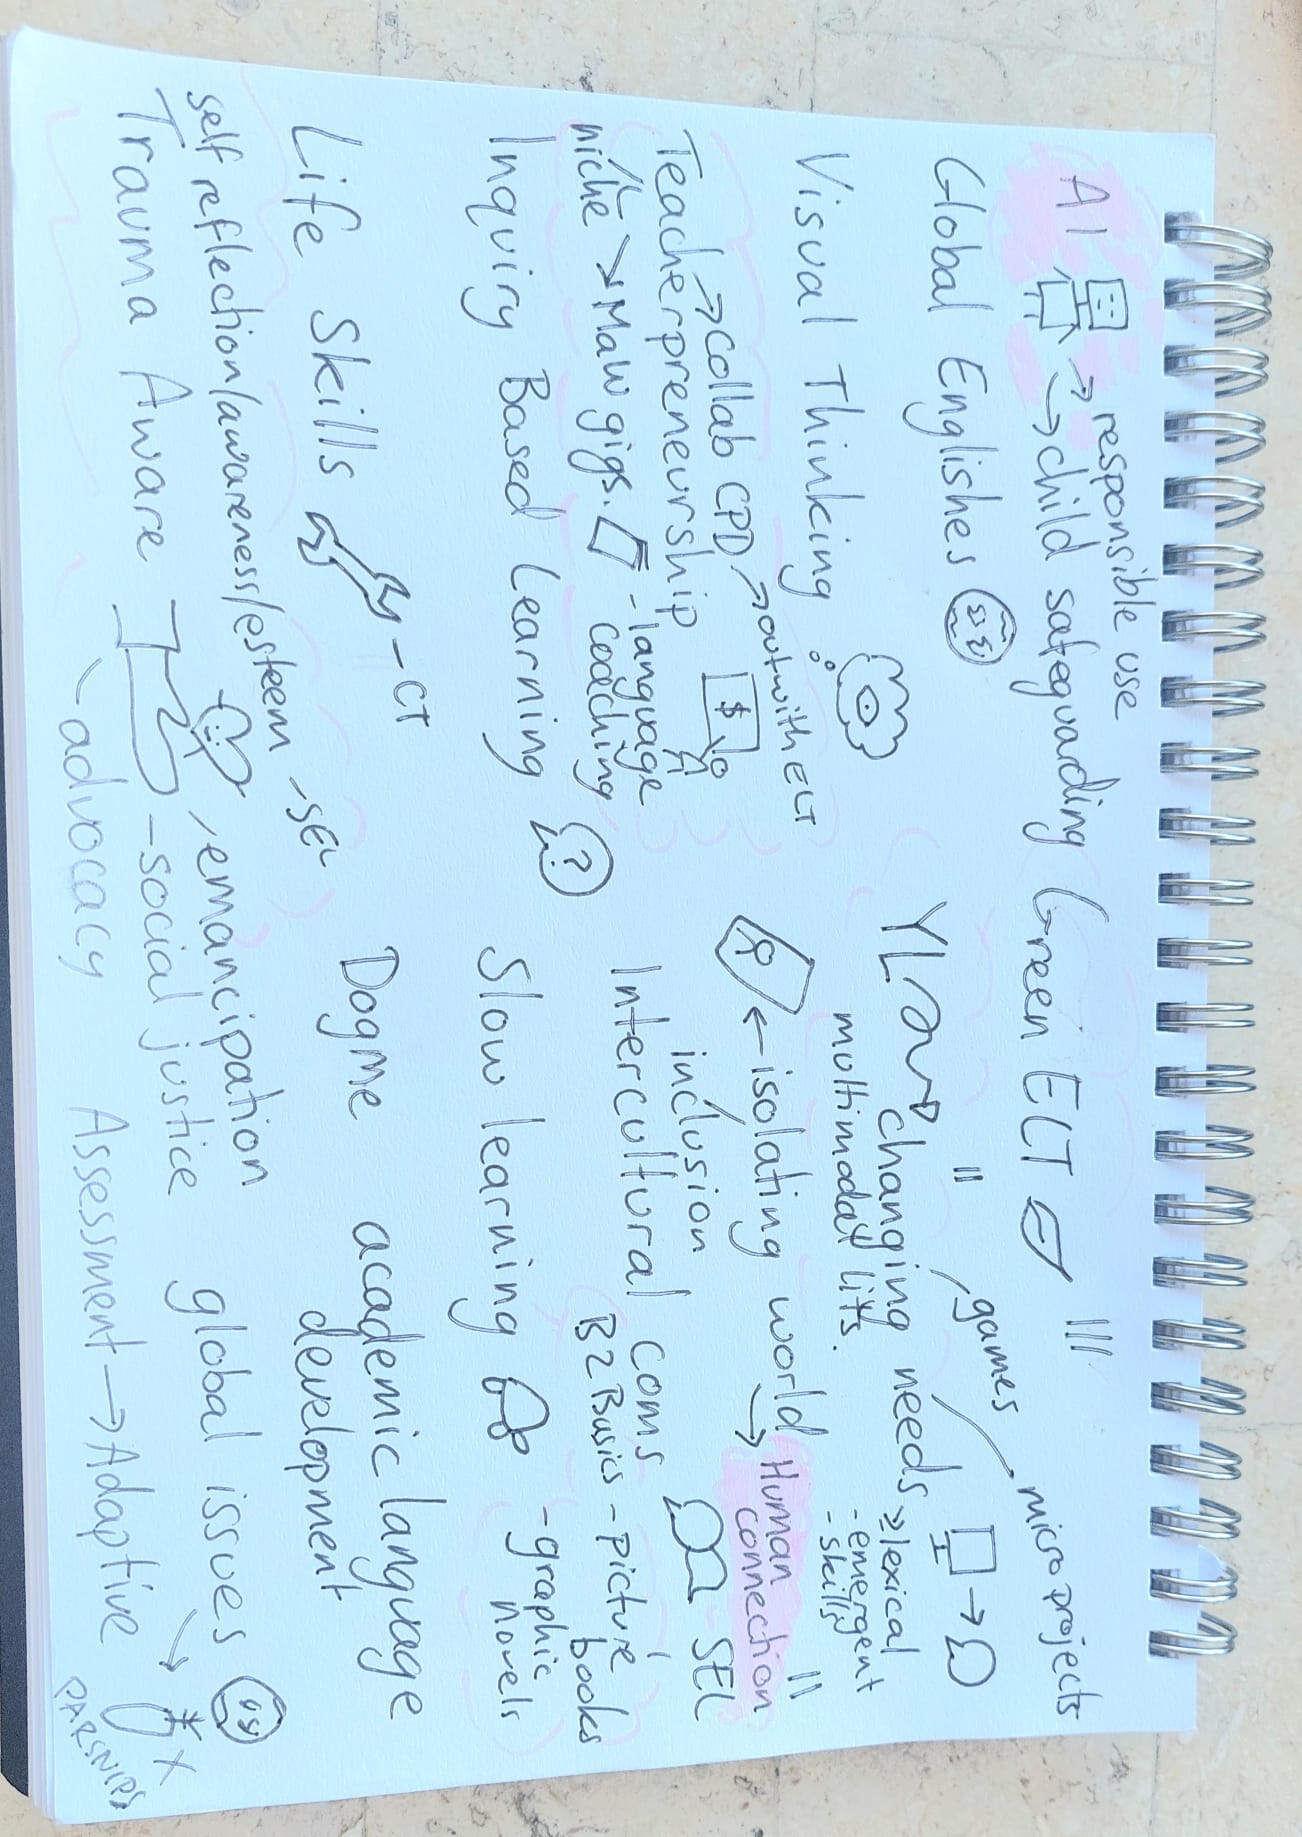 AI → responsible use
→ child safeguarding
Global Englishes
Visual Thinking
→ collab CPD → outwith ELT
Teacherpreneurship $
niche → Maw gigs. - language coaching
Inquiry Based Learning ?
Life Skills - CT
self reflection/awareness/esteem - SEL
Trauma Aware - emancipation
- social justice
- advocacy
Green ELT
games
microprojects
YL → changing needs → lexical
- emergent
- skills
multimodal lits.
← isolating world → Human connection
inclusion
Intercultural coms SEL
B2 Basics - picture books
- graphic novels
Slow learning
Dogme
academic language development
global issues
Assessment → Adaptive
PARSNIPS